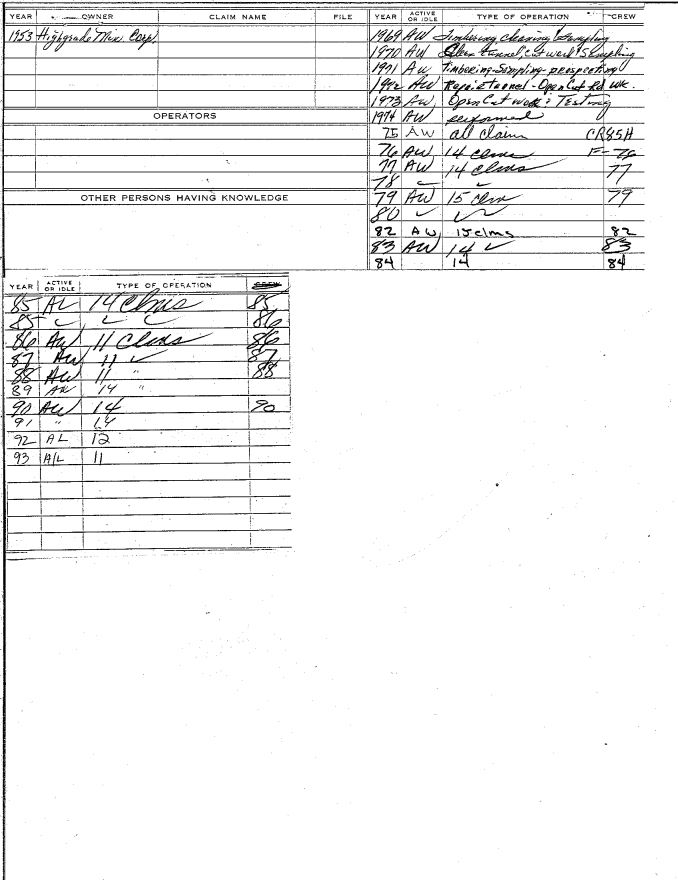 YEAR OWNER CLAIM NAME FILE
1953 Highgrade Min. Corp.
OPERATORS
OTHER PERSONS HAVING KNOWLEDGE
YEAR ACTIVE OR IDLE TYPE OF OPERATION CREW
1969 AW Timbering cleaning Sampling
1970 AW Clean tunnel, Cut work Sampling
1971 AW Timbering-Sampling-prospecting
1972 AW Repair tunnel-OpenCut Rd wk.
1973 AW OpenCut work & Testing
1974 AW performed
75 AW all claim CR85H
76 AW 14 clms F-76
77 AW 14 clms 77
78
79 AW 15 clm 79
80
82 AW 15 clms 82
83 AW 14 ✓ 83
84 14 84
YEAR ACTIVE OR IDLE TYPE OF OPERATION
85 AL 14 Clms 85
85 86
86 AW 11 Clms 86
87 AW 11 ✓ 87
88 AW 11 " 88
89 AW 14 "
90 AW 14 90
91 " 14
92 AL 12
93 A/L 11